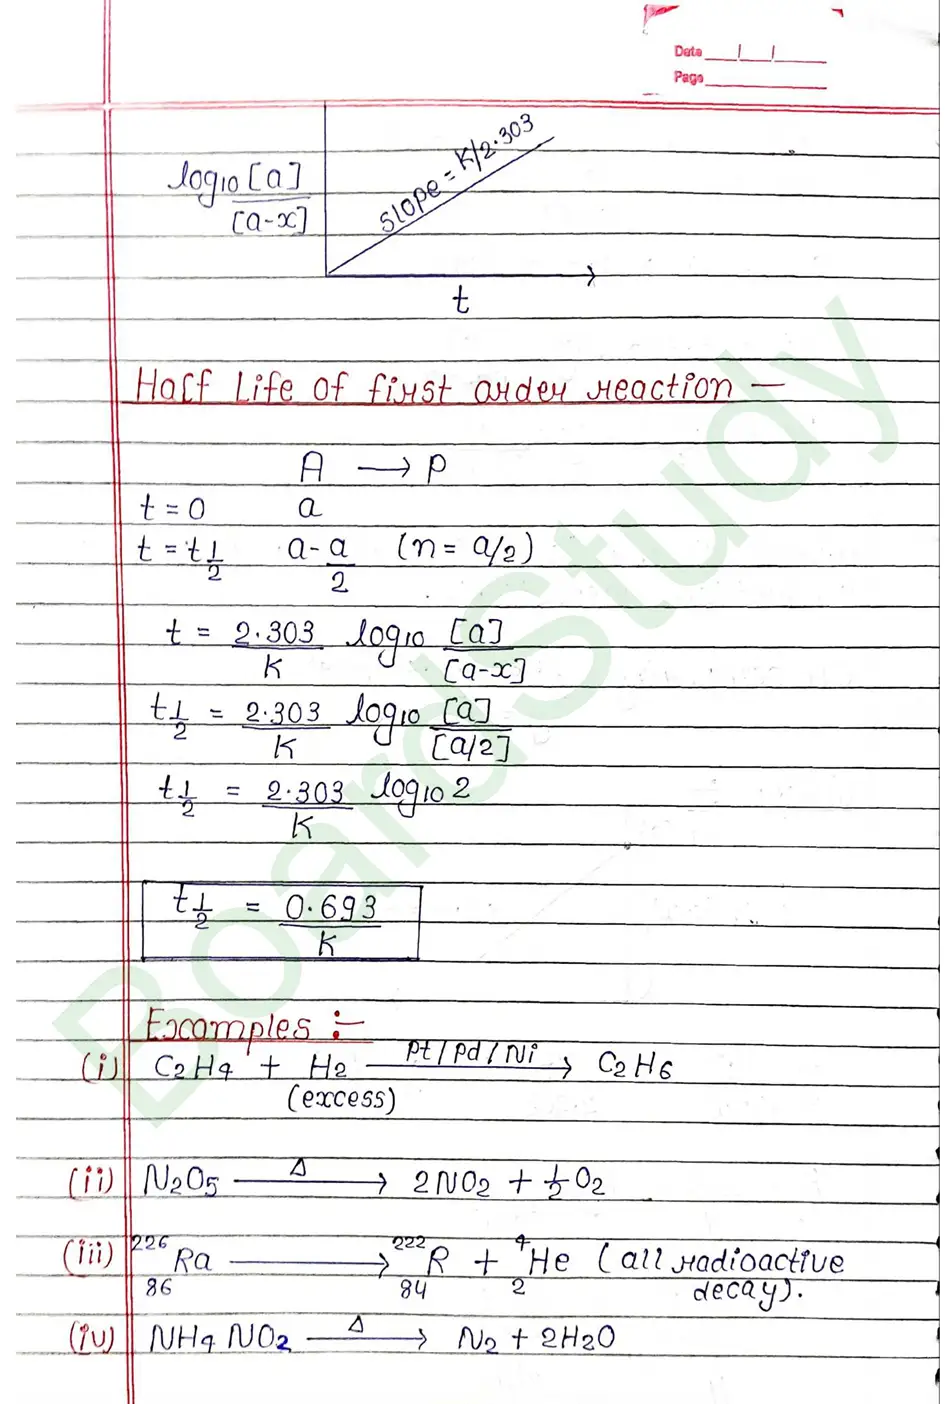 Date
Page
log10 [a]
[a-x]
Slope = K/2.303
t
Half Life of first order reaction —
A → P
t = 0 a
t = t1/2 a - a/2 (n = a/2)
t = 2.303/K log10 [a]/[a-x]
t1/2 = 2.303/K log10 [a]/[a/2]
t1/2 = 2.303/K log10 2
t1/2 = 0.693/K
Examples :-
(i) C2H4 + H2 Pt/Pd/Ni → C2H6
(excess)
(ii) N2O5 Δ → 2NO2 + 1/2 O2
(iii) 226 86 Ra → 222 84 R + 4 2 He (all radioactive
decay).
(iv) NH4NO2 Δ → N2 + 2H2O
BoardStudy